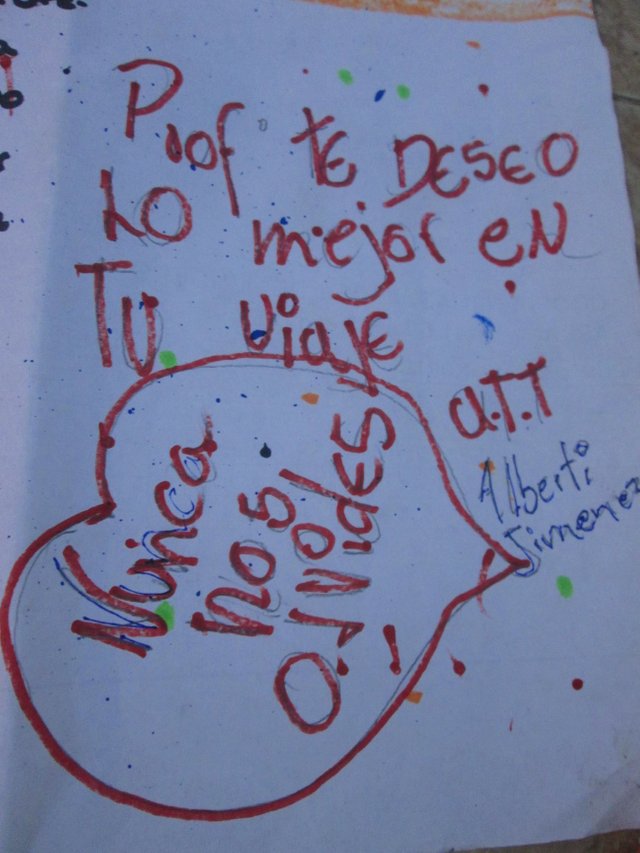 Prof TE DESEO
LO mejor EN
TU viaje
Nunca
nos
OlvidES!
a.T.T
Alberti
Jimenez